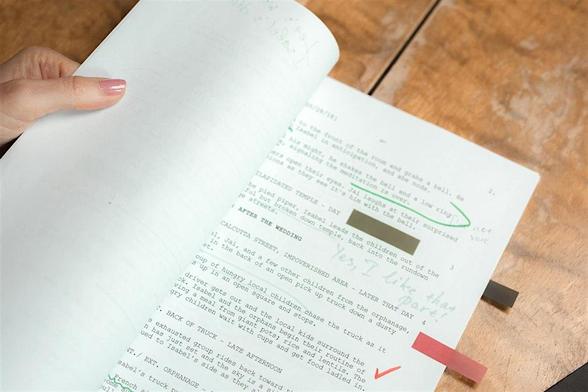 to the front of the room and grabs a bell. He
Isabel in anticipation, and she nods.
his might, he shakes the bell and a low ring
signaling the meditation is over.
open their eyes. Jai laughs at their surprised
as they see it's him with the bell.
2.
DILAPIDATED TEMPLE - DAY
pied piper, Isabel leads the children out of the
ful but broken down temple, back into the rundown
streets.
AFTER THE WEDDING
3
CALCUTTA STREET, IMPOVERISHED AREA - LATER THAT DAY
Jai, and a few other children from the orphanage,
in the back of an open pick up truck down a dusty
Yes, I like that
part!
4
group of hungry local children chase the truck as it
s up in an open square and stops.
driver gets out and the local kids surround the
Isabel and the orphans begin their routine of
ving a meal from giant pots; rice and lentils. The
ry children wait with cups and get food ladled in.
BACK OF TRUCK - LATE AFTERNOON
exhausted group rides back toward
has just set and the sky is a
used to Isabel's side as they
EXT. ORPHANAGE -